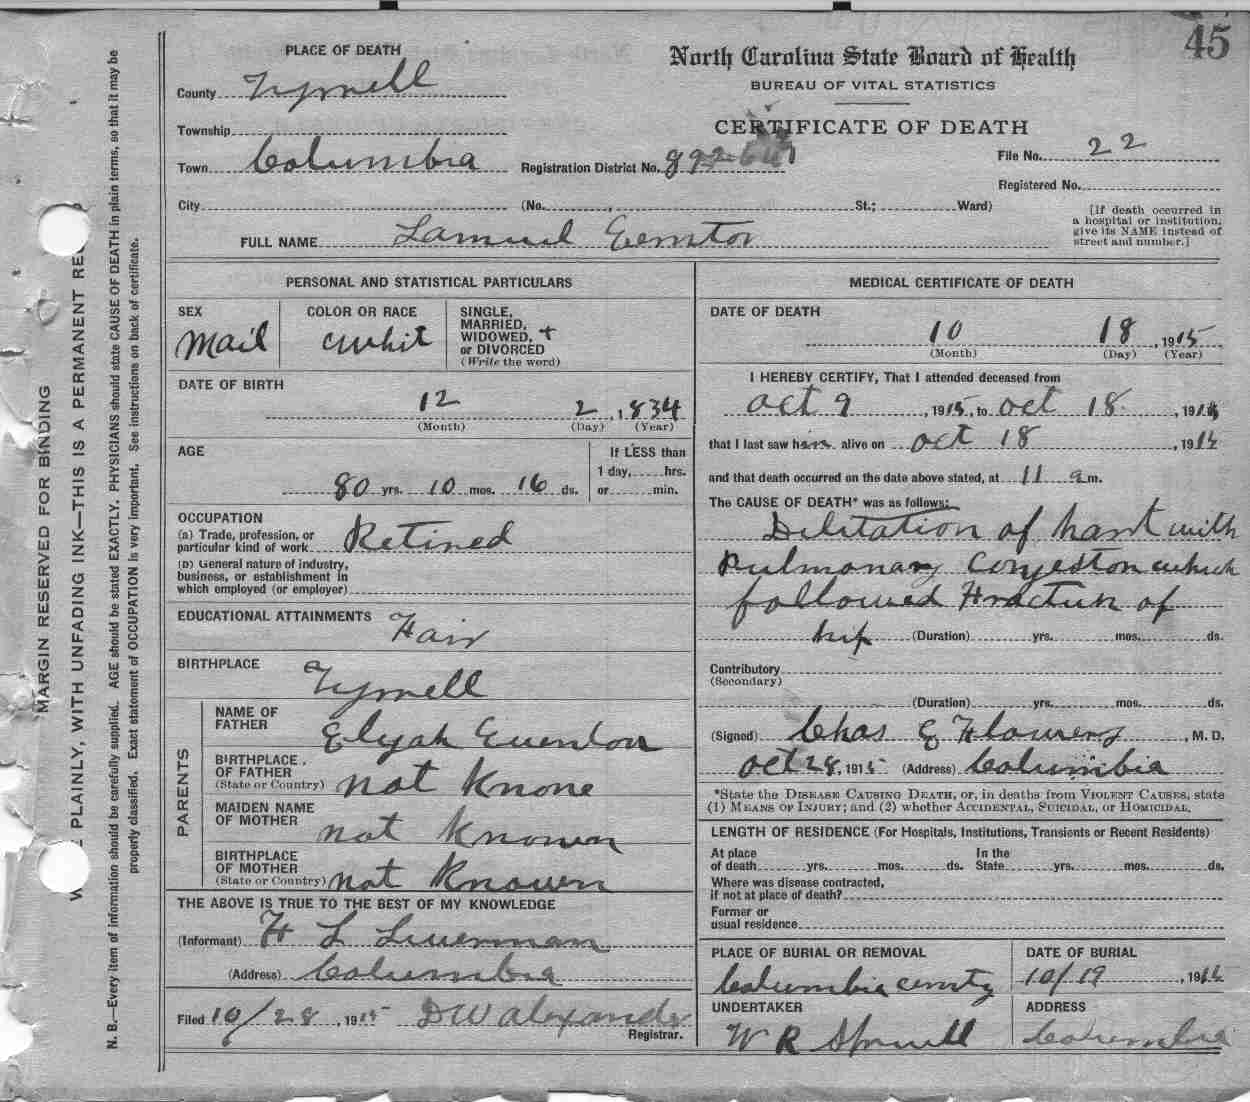 45
PLACE OF DEATH
County Tyrrell
Township
Town Columbia
City
North Carolina State Board of Health
BUREAU OF VITAL STATISTICS
CERTIFICATE OF DEATH
Registration District No. 892
File No. 22
Registered No.
(No. , St.; Ward)
[If death occurred in
a hospital or institution,
give its NAME instead of
street and number.]
FULL NAME
PERSONAL AND STATISTICAL PARTICULARS
SEX
Mail
COLOR OR RACE
whit
SINGLE,
MARRIED,
WIDOWED, +
or DIVORCED
(Write the word)
DATE OF BIRTH
12 2, 1834
(Month) (Day) (Year)
AGE
80 yrs. 10 mos. 16 ds.
If LESS than
1 day, hrs.
or min.
OCCUPATION
(a) Trade, profession, or
particular kind of work Retired
(b) General nature of industry,
business, or establishment in
which employed (or employer)
EDUCATIONAL ATTAINMENTS Fair
BIRTHPLACE Tyrrell
PARENTS
NAME OF
FATHER Elijah
BIRTHPLACE
OF FATHER
(State or Country) not Knone
MAIDEN NAME
OF MOTHER not Known
BIRTHPLACE
OF MOTHER
(State or Country) not Known
THE ABOVE IS TRUE TO THE BEST OF MY KNOWLEDGE
(Informant) H L Liverman
(Address) Columbia
Filed 10/28, 1915 D W Alexander
Registrar.
MEDICAL CERTIFICATE OF DEATH
DATE OF DEATH
10 18, 1915
(Month) (Day) (Year)
I HEREBY CERTIFY, That I attended deceased from
Oct 9, 1915, to Oct 18, 191
that I last saw him alive on Oct 18, 191
and that death occurred on the date above stated, at 11 a m.
The CAUSE OF DEATH* was as follows:
Dilitation of hart with
Pulmonary Congestion which
followed Fracture of
hip (Duration) yrs. mos. ds.
Contributory
(Secondary)
(Duration) yrs. mos. ds.
(Signed) Chas E Flowers, M. D.
Oct 28, 1915 (Address) Columbia
*State the DISEASE CAUSING DEATH, or, in deaths from VIOLENT CAUSES, state
(1) MEANS OF INJURY; and (2) whether ACCIDENTAL, SUICIDAL, or HOMICIDAL.
LENGTH OF RESIDENCE (For Hospitals, Institutions, Transients or Recent Residents)
At place
of death yrs. mos. ds.
In the
State yrs. mos. ds.
Where was disease contracted,
if not at place of death?
Former or
usual residence
PLACE OF BURIAL OR REMOVAL
Columbia
DATE OF BURIAL
10/19, 191
UNDERTAKER
W R Spruill
ADDRESS
Columbia
MARGIN RESERVED FOR BINDING
PLAINLY, WITH UNFADING INK—THIS IS A PERMANENT
N. B.—Every item of information should be carefully supplied. AGE should be stated EXACTLY. PHYSICIANS should state CAUSE OF DEATH in plain terms, so that it may be
properly classified. Exact statement of OCCUPATION is very important. See instructions on back of certificate.